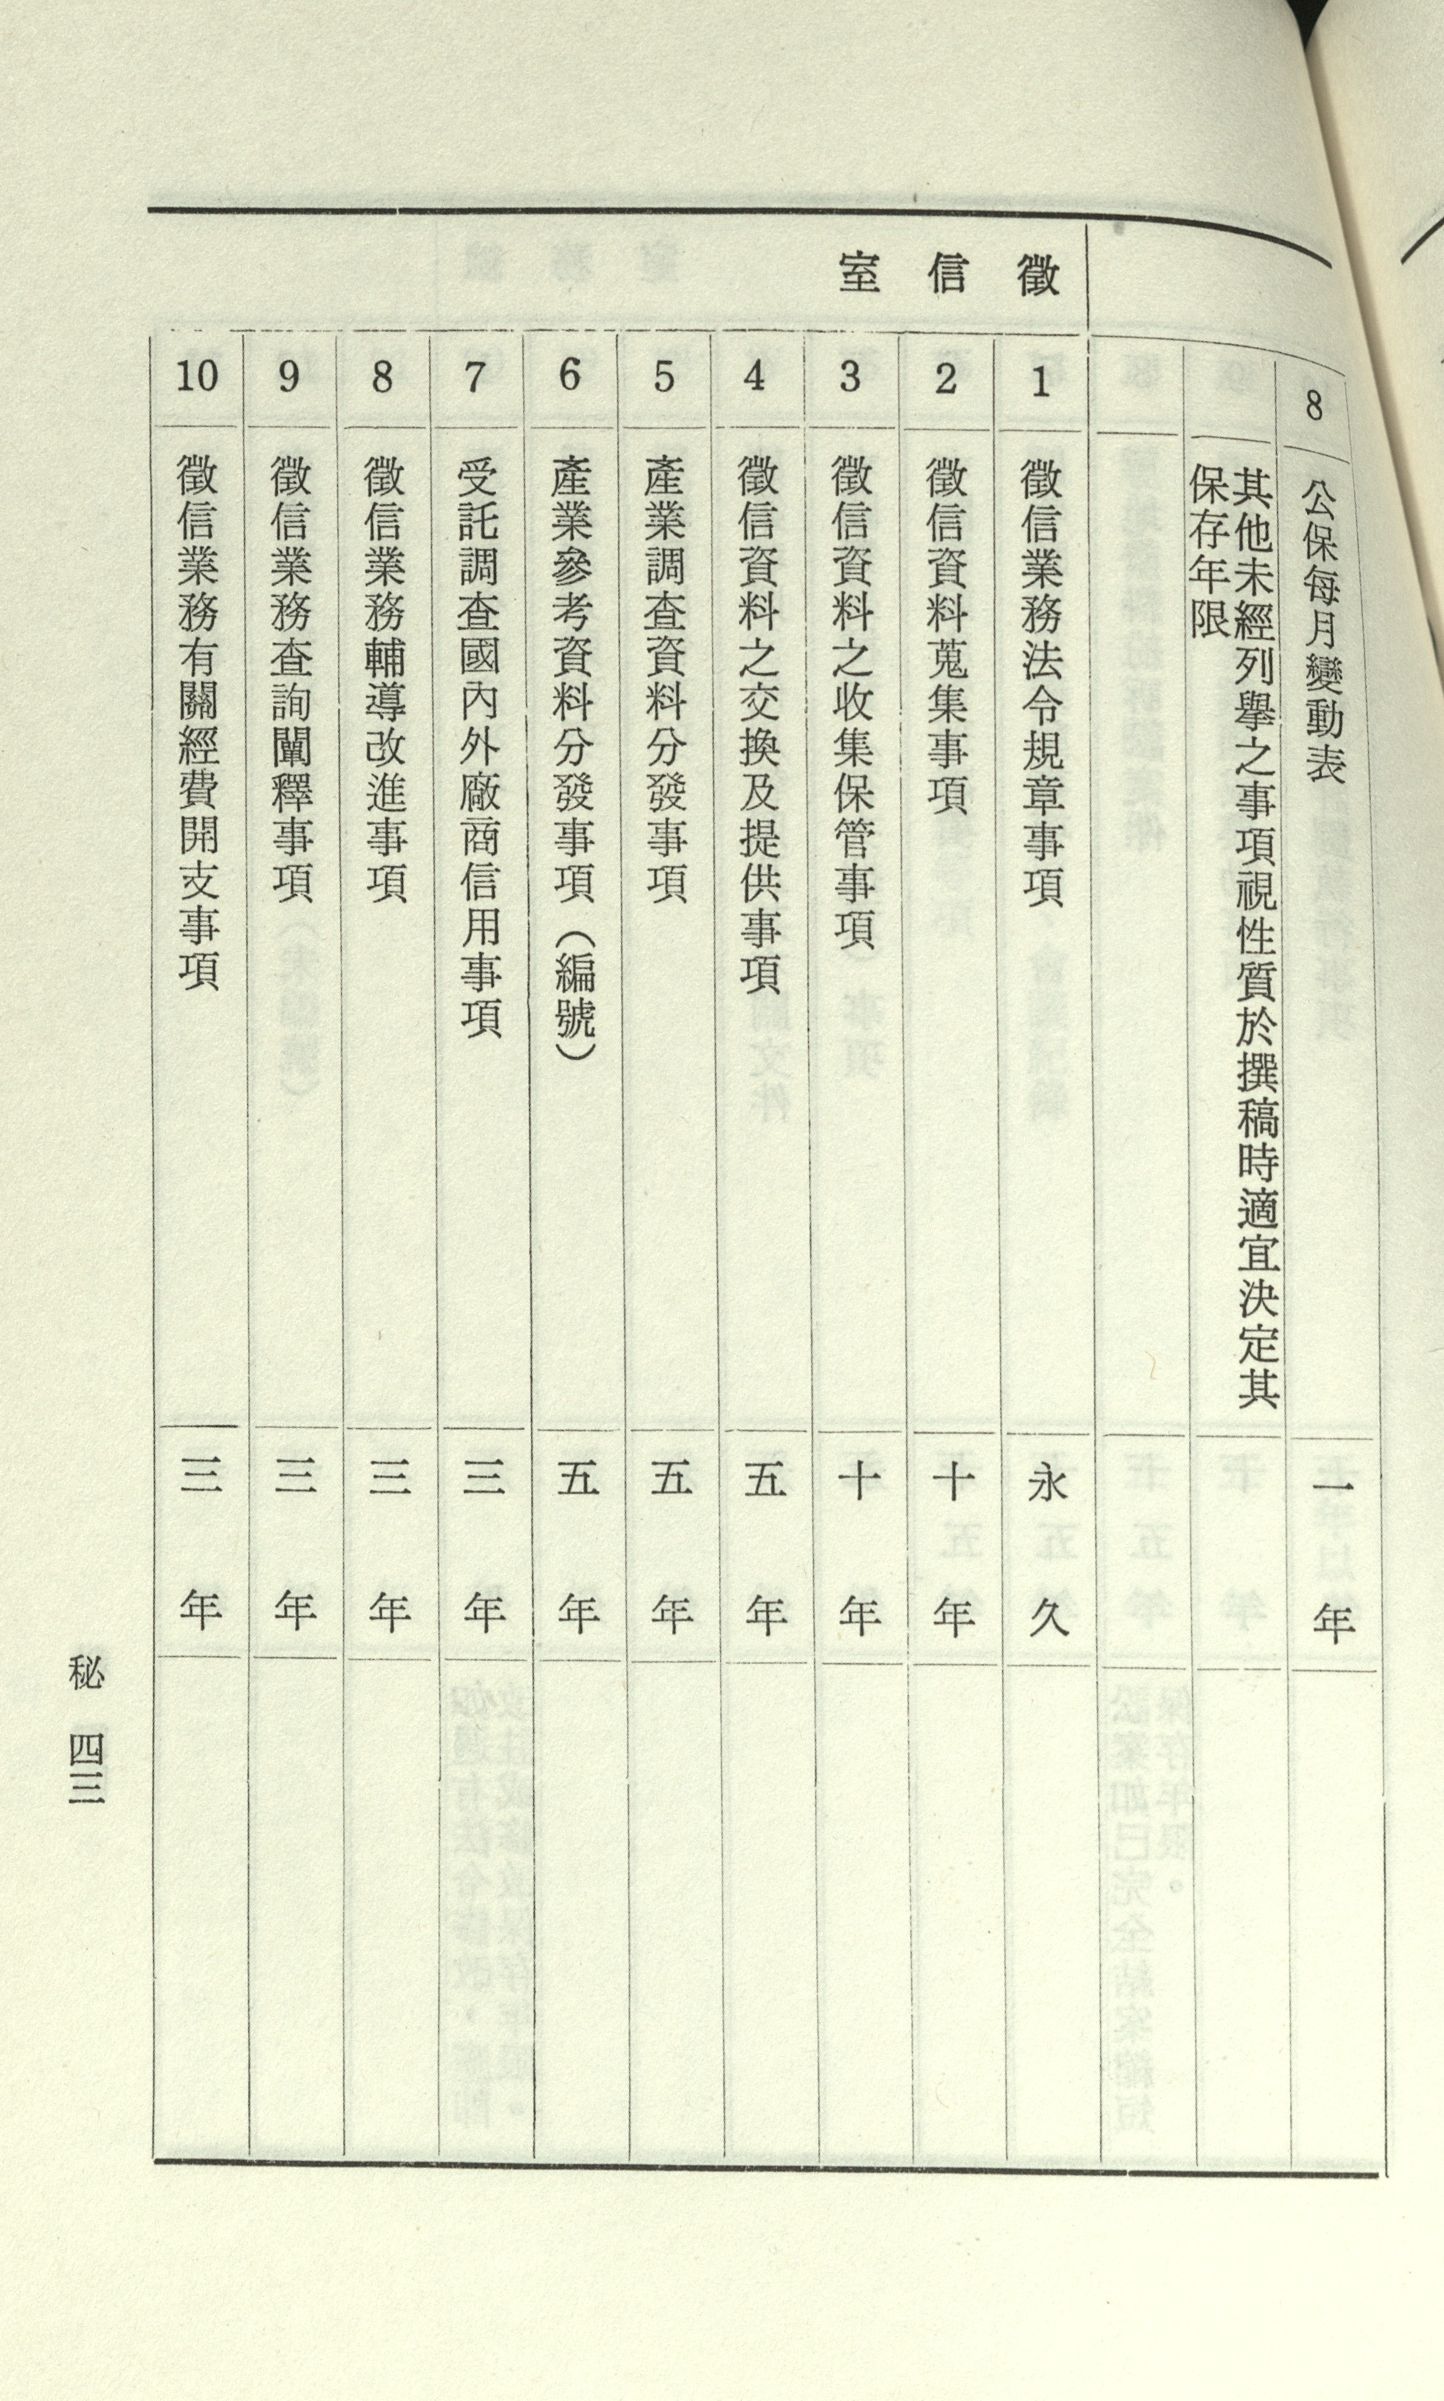 8 公保每月變動表 一年
其他未經列舉之事項視性質於撰稿時適宜決定其
保存年限
徵信室
1 徵信業務法令規章事項 永久
2 徵信資料蒐集事項 十年
3 徵信資料之收集保管事項 十年
4 徵信資料之交換及提供事項 五年
5 產業調查資料分發事項 五年
6 產業參考資料分發事項（編號） 五年
7 受託調查國內外廠商信用事項 三年
8 徵信業務輔導改進事項 三年
9 徵信業務查詢闡釋事項 三年
10 徵信業務有關經費開支事項 三年
秘 四三